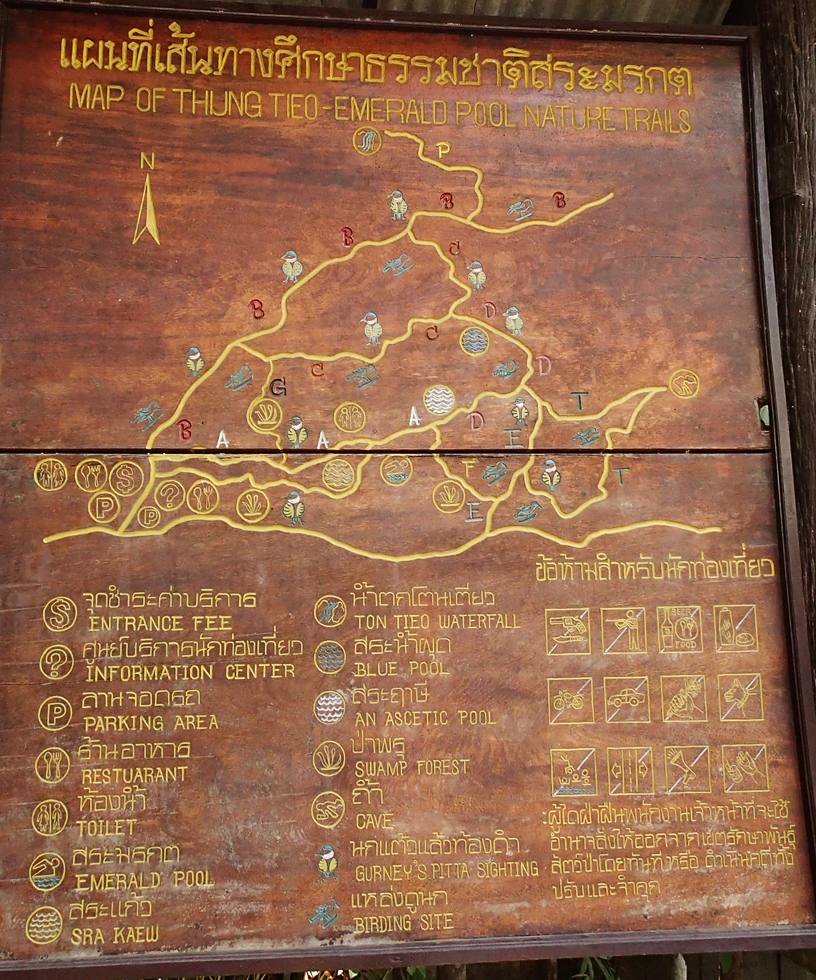 แผนที่เส้นทางศึกษาธรรมชาติสระมรกต
MAP OF THUNG TIEO-EMERALD POOL NATURE TRAILS
N
P
B
B
B
C
B
D
C
C
D
G
T
A
D
B
A
A
E
F
T
S
P
?
P
E
ข้อห้ามสำหรับนักท่องเที่ยว
S
จุดชำระค่าบริการ
ENTRANCE FEE
?
ศูนย์บริการนักท่องเที่ยว
INFORMATION CENTER
P
ลานจอดรถ
PARKING AREA
ร้านอาหาร
RESTUARANT
ห้องน้ำ
TOILET
สระมรกต
EMERALD POOL
สระแก้ว
SRA KAEW
น้ำตกโตนเตียว
TON TIEO WATERFALL
สระน้ำผุด
BLUE POOL
สระฤาษี
AN ASCETIC POOL
ป่าพรุ
SWAMP FOREST
ถ้ำ
CAVE
นกแต้วแล้วท้องดำ
GURNEY'S PITTA SIGHTING
แหล่งดูนก
BIRDING SITE
BEER
FOOD
ผู้ใดฝ่าฝืนพนักงานเจ้าหน้าที่จะใช้
อำนาจสั่งให้ออกจากเขตรักษาพันธุ์
สัตว์ป่าโดยทันที หรือ ดำเนินคดีทั้ง
ปรับและจำคุก